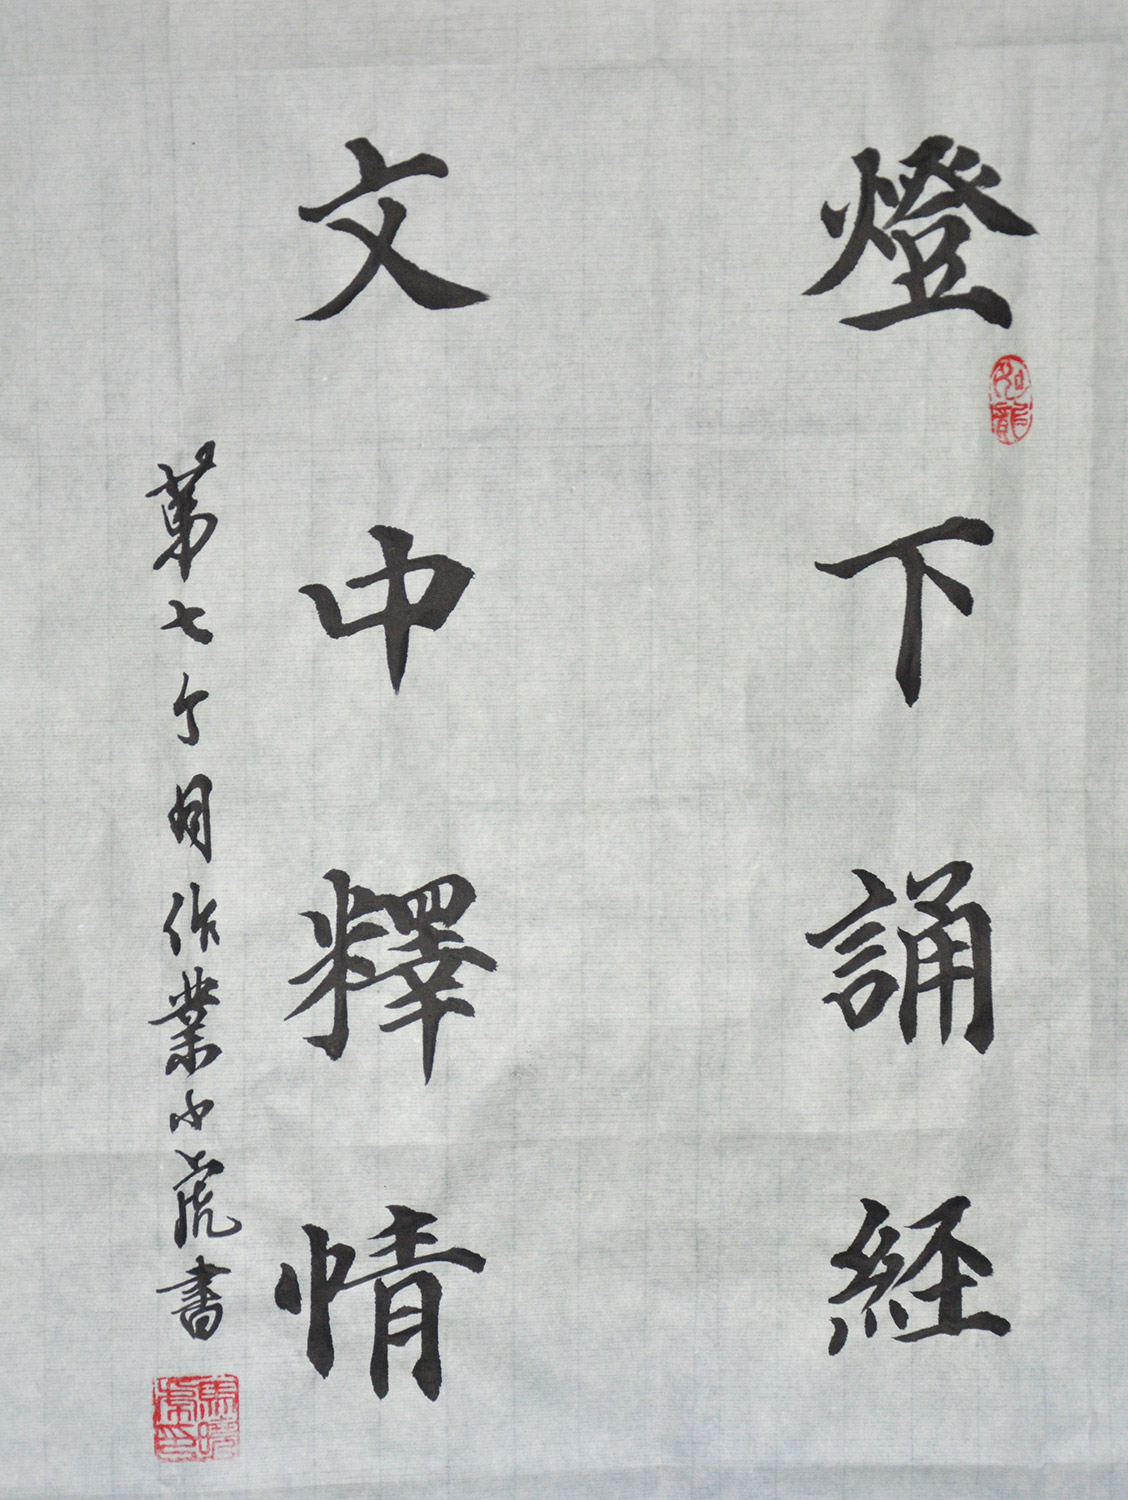 燈下誦経
文中釋情
第七个月作業小虎書